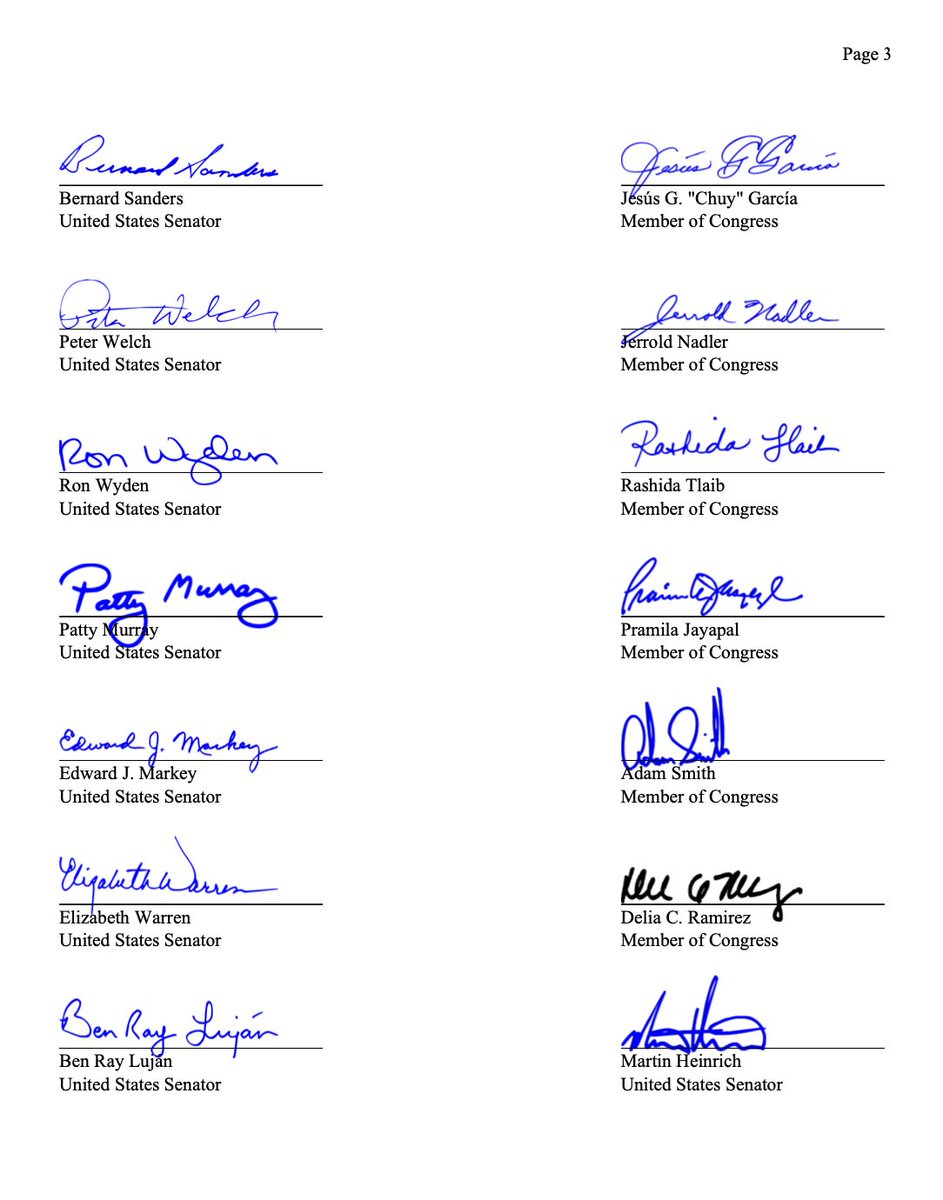 Page 3
Bernard Sanders
Bernard Sanders
United States Senator
Jesús G García
Jesús G. "Chuy" García
Member of Congress
Peter Welch
Peter Welch
United States Senator
Jerrold Nadler
Jerrold Nadler
Member of Congress
Ron Wyden
Ron Wyden
United States Senator
Rashida Tlaib
Rashida Tlaib
Member of Congress
Patty Murray
Patty Murray
United States Senator
Pramila Jayapal
Pramila Jayapal
Member of Congress
Edward J. Markey
Edward J. Markey
United States Senator
Adam Smith
Adam Smith
Member of Congress
Elizabeth Warren
Elizabeth Warren
United States Senator
Delia C. Ramirez
Member of Congress
Ben Ray Luján
Ben Ray Luján
United States Senator
Martin Heinrich
United States Senator